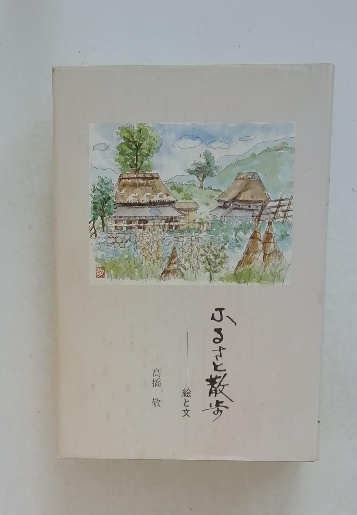 ふるさと散歩
絵と文
高橋 敬